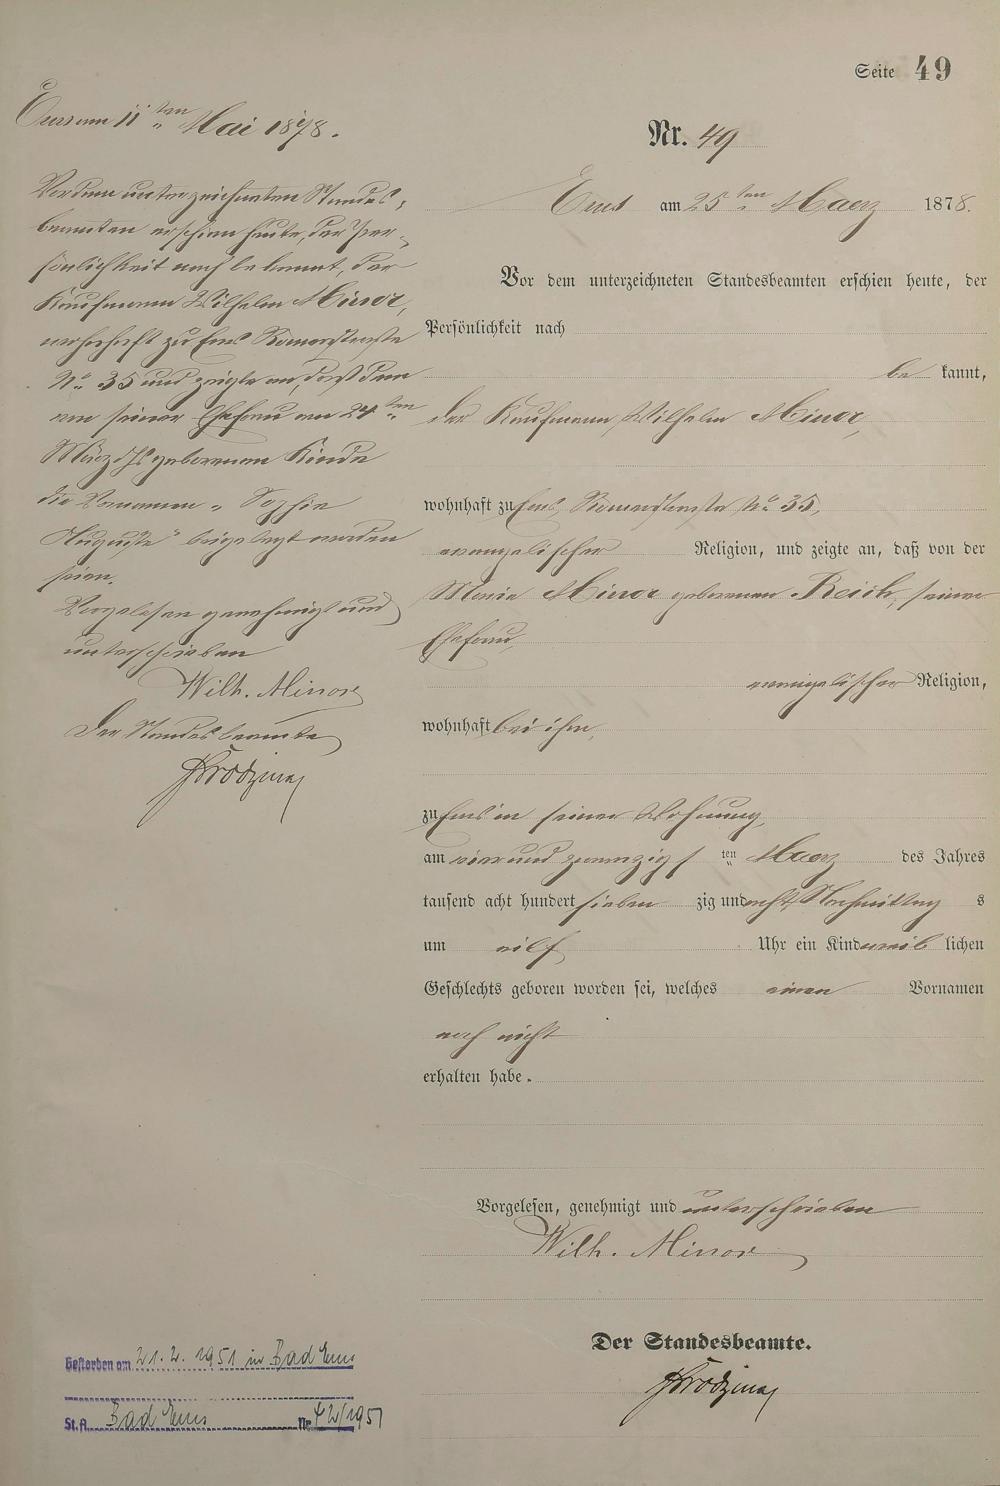 Seite 49
Ems am 11ten Mai 1878.
Vor dem unterzeichneten Standes-
beamten erschien heute, der Per-
sönlichkeit nach bekannt, der
Kaufmann Wilhelm Minor,
wohnhaft zu Ems Roemerstraße
No. 35 und zeigte an, daß dem
von seiner Ehefrau am 24ten
März d Js geborenen Kinde
die Vornamen „Sophie
Auguste" beigelegt worden
seien.
Vorgelesen genehmigt und
unterschrieben
Wilh. Minor
Der Standesbeamte
Nr. 49
Ems am 25ten Maerz 1878.
Vor dem unterzeichneten Standesbeamten erschien heute, der
Persönlichkeit nach
be kannt,
der Kaufmann Wilhelm Minor,
wohnhaft zu Ems, Roemerstraße No. 35,
evangelischer Religion, und zeigte an, daß von der
Maria Minor geborenen Reich, seiner
Ehefrau,
evangelischer Religion,
wohnhaft bei ihm,
zu Ems in seiner Wohnung,
am vier und zwanzigs ten Maerz des Jahres
tausend acht hundert sieben zig und acht Nachmittag s
um elf Uhr ein Kind weib lichen
Geschlechts geboren worden sei, welches einen Vornamen
noch nicht
erhalten habe.
Vorgelesen, genehmigt und unterschrieben
Wilh. Minor
Der Standesbeamte.
Gestorben am 21.2.1951 in Bad Ems
St.A. Bad Ems Nr. 42/1951